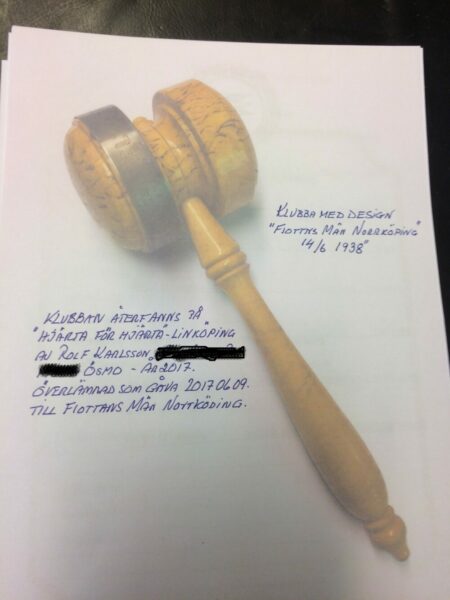 KLUBBA MED DESIGN
"FLOTTNS MÄN NORRKÖPING"
14/6 1938"
KLUBBAN ÅTERFANNS PÅ
"HJÄRTA FÖR HJÄRTA"-LINKÖPING
AV ROLF KARLSSON,
ÖSMO - ÅR 2017.
ÖVERLÄMNAD SOM GÅVA 20170609.
TILL FLOTTANS MÄN NORRKÖPING.